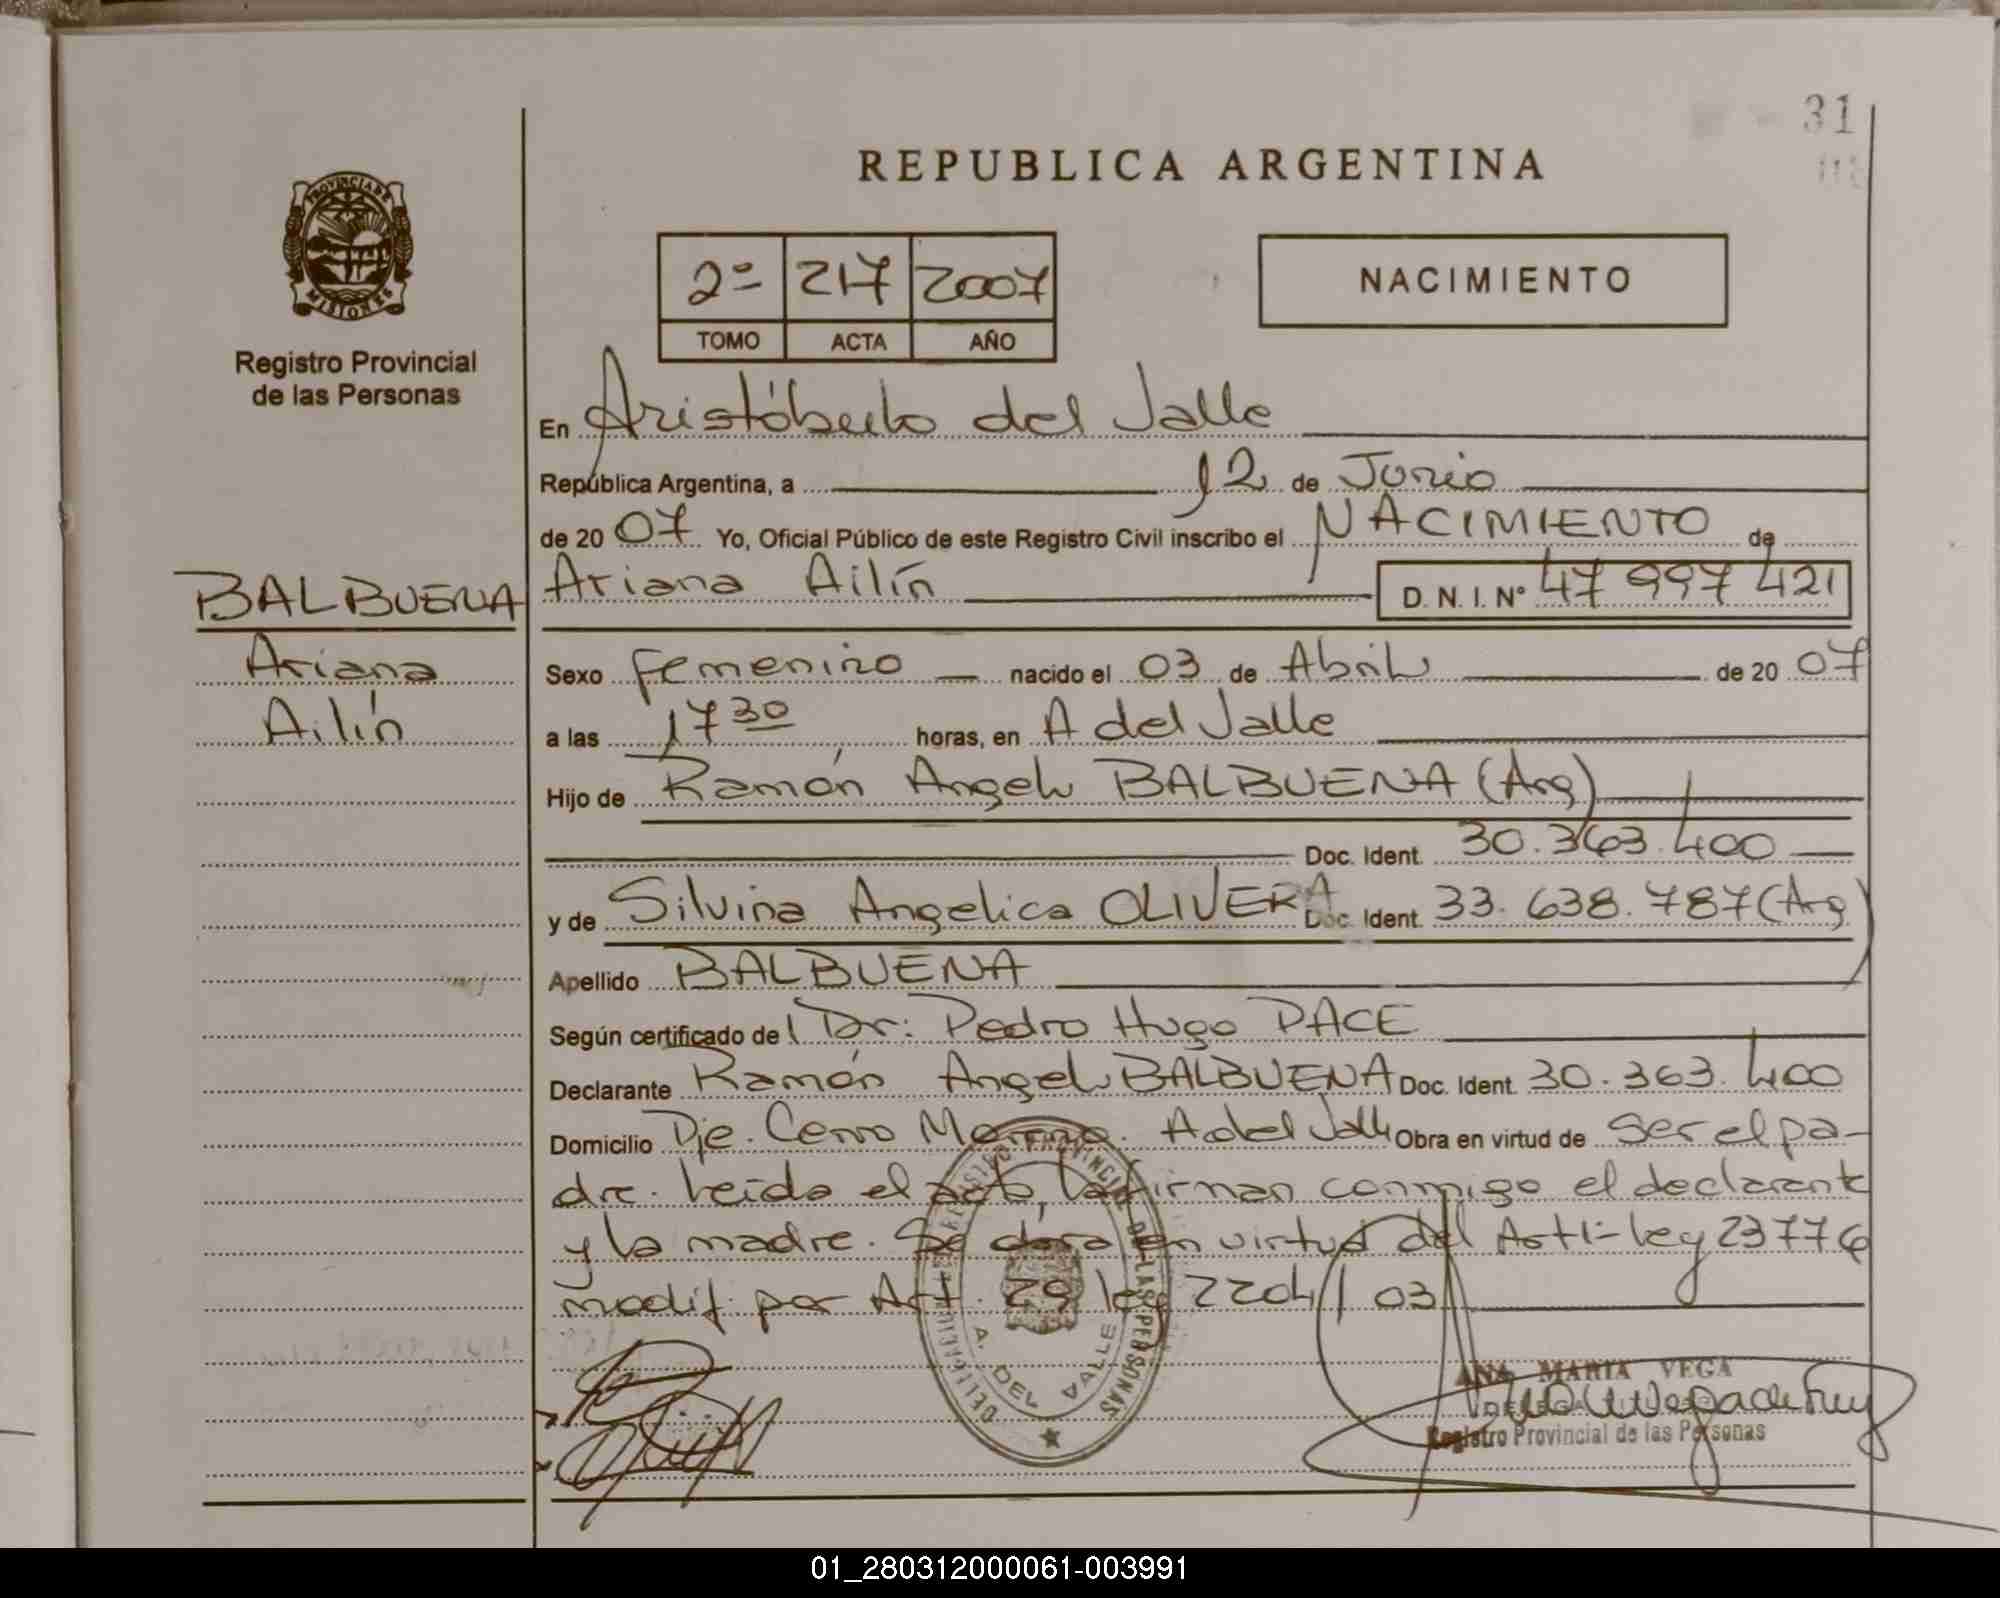 31
PROVINCIA DE
MISIONES
Registro Provincial
de las Personas
REPUBLICA ARGENTINA
2º 217 2007
TOMO ACTA AÑO
NACIMIENTO
En Aristóbulo del Valle
República Argentina, a 12 de Junio
de 2007 Yo, Oficial Público de este Registro Civil inscribo el NACIMIENTO de
BALBUENA Ariana Ailín D. N. I. Nº 47 997 421
Ariana Sexo femenino nacido el 03 de Abril de 2007
Ailín a las 17 30 horas, en A del Valle
Hijo de Ramón Angel BALBUENA (Arg)
Doc. Ident. 30.363.400
y de Silvina Angelica OLIVERA Doc. Ident. 33.638.787 (Arg)
Apellido BALBUENA
Según certificado del Dr: Pedro Hugo PACE
Declarante Ramón Angel BALBUENA Doc. Ident. 30.363.400
Domicilio Pje. Cerro Moreno. A del Valle Obra en virtud de ser el pa-
dre. Leída el acta, la firman conmigo el declarante
y la madre. Se labra en virtud del Art 1º ley 23776
modif. por Art. 29 ley 2204/03
DELEGACION REGISTRO PROVINCIAL DE LAS PERSONAS
A. DEL VALLE
ANA MARIA VEGA
DELEGADA
Registro Provincial de las Personas
01_280312000061-003991